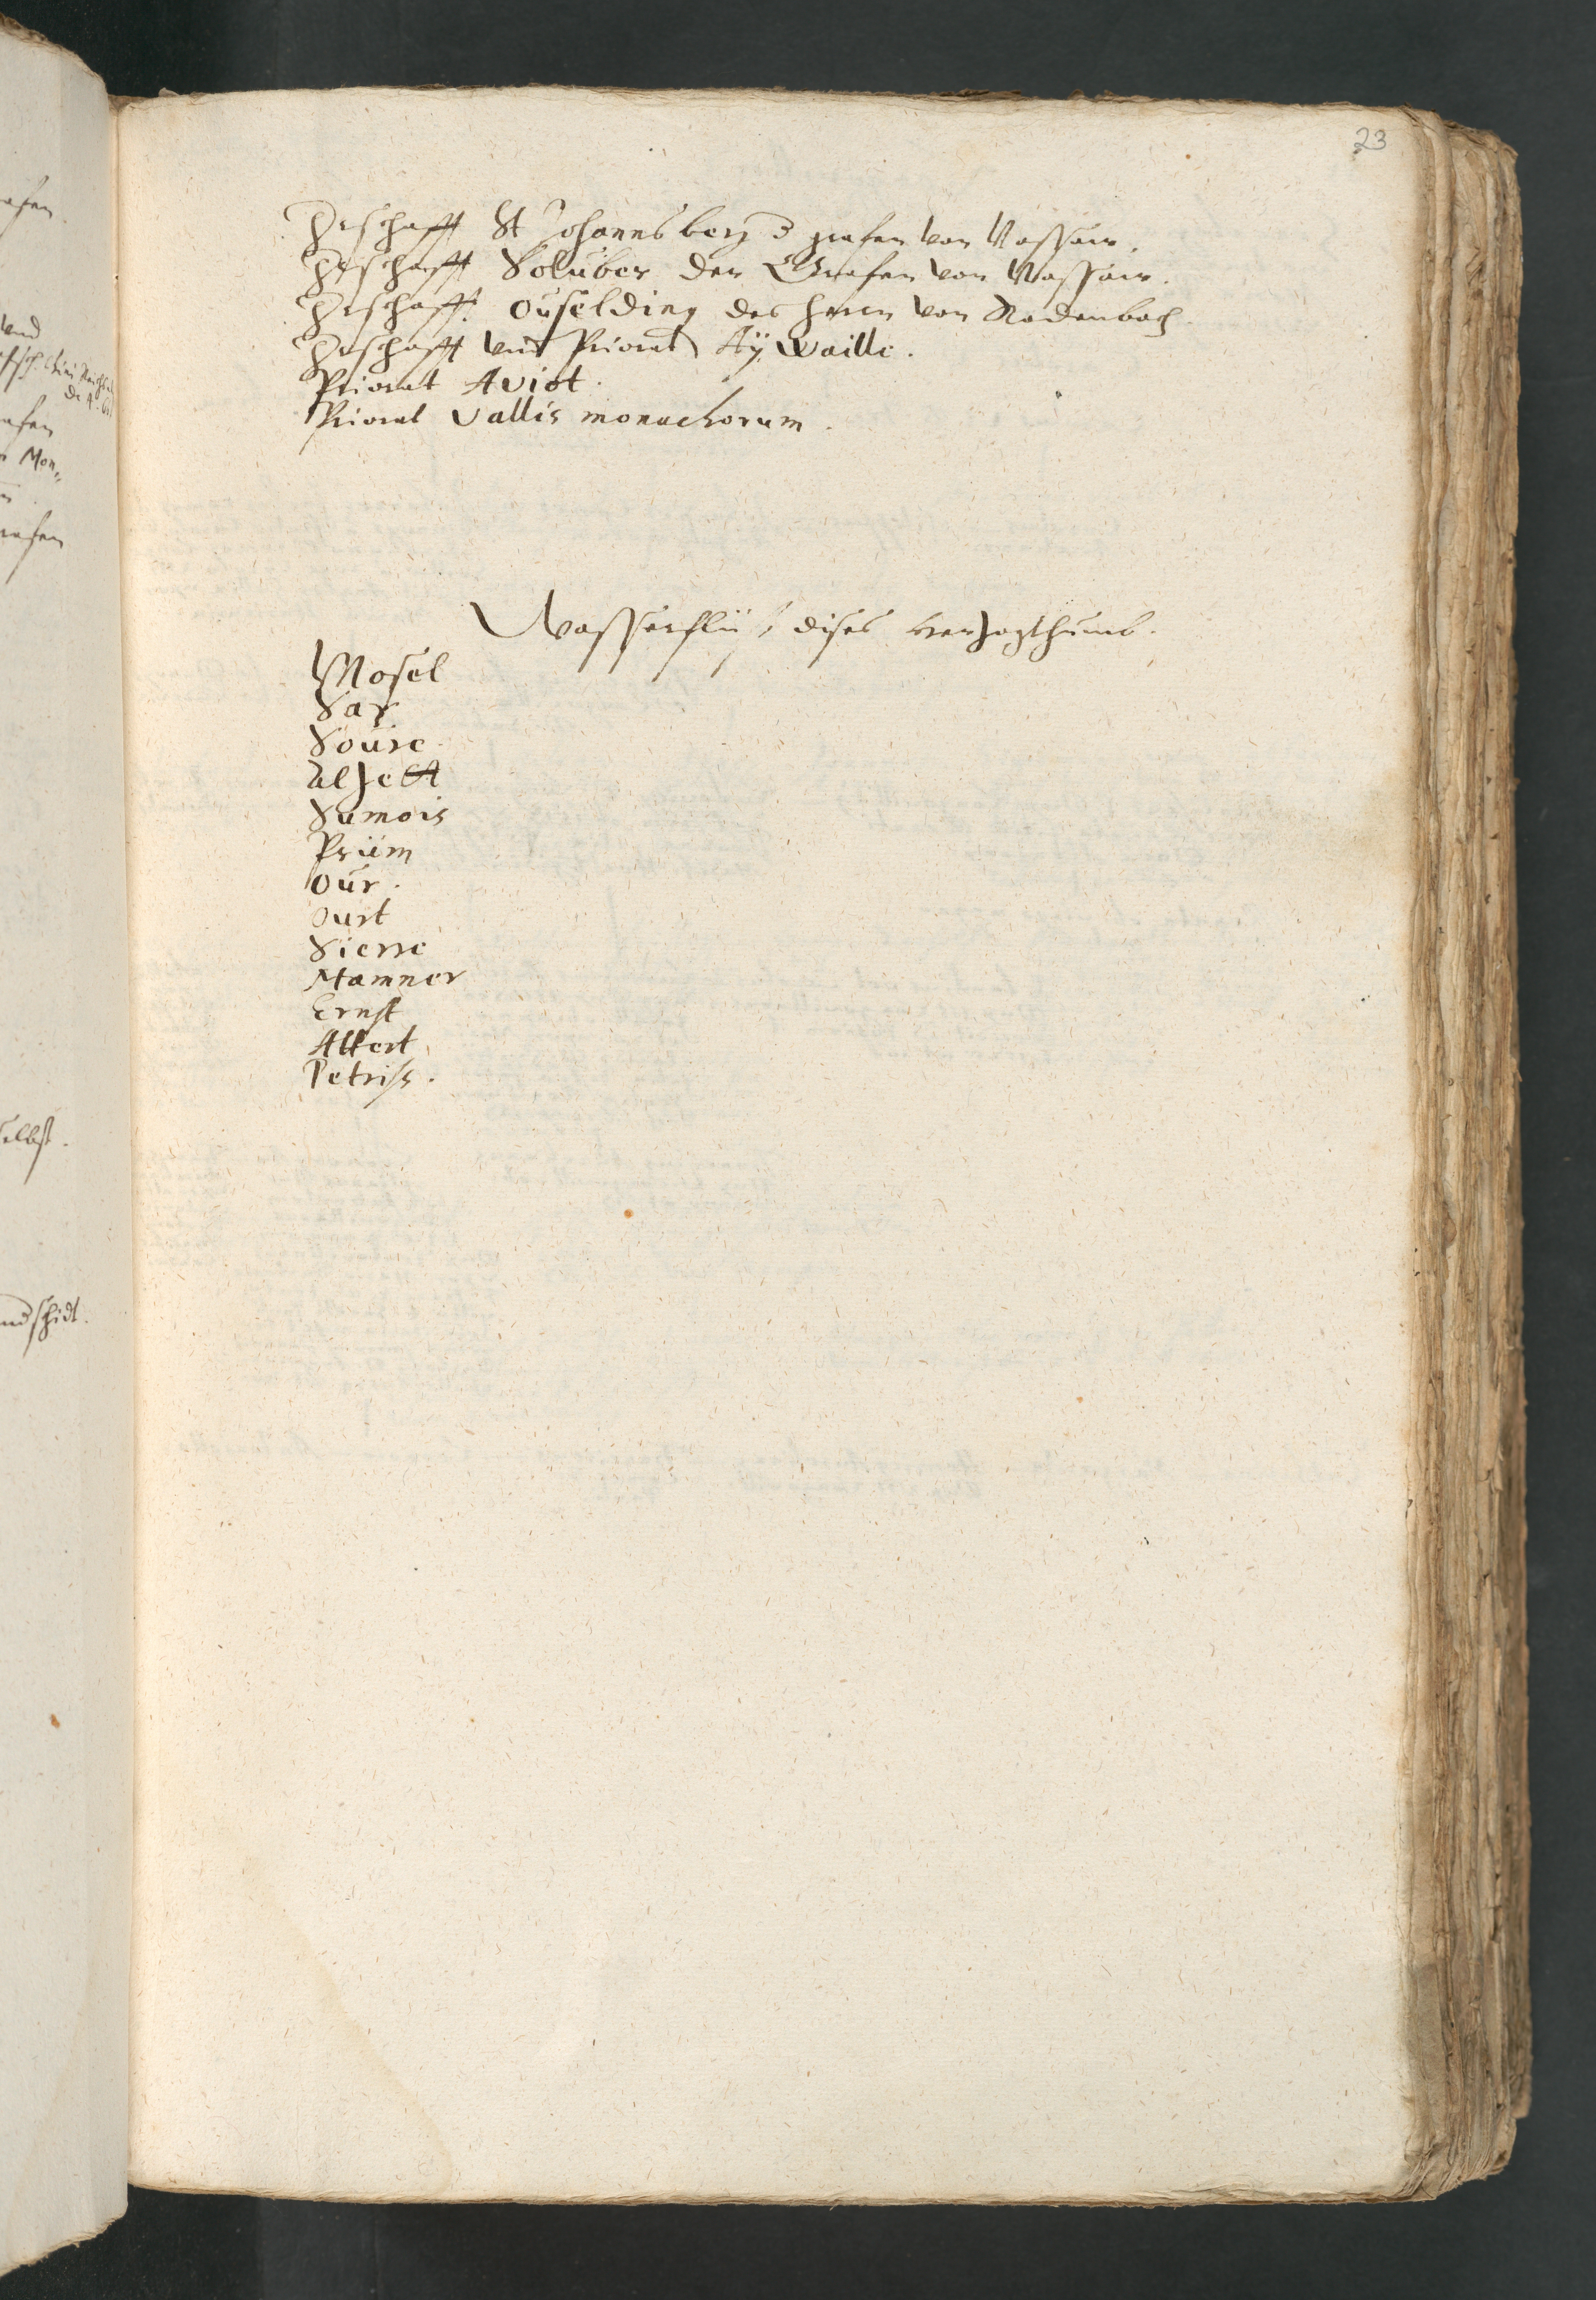 23
Hrschafft St Johannsberg d grafen von Nassaw.
Hrschafft Soluber der Grafen von Nassaw.
Hrschafft Ouselding des herrn von Rodenbach.
Hrschafft und Priorat Aÿwaille.
Priorat Aviot.
Priorat Vallis monachorum.
Wasserflüß dises Herzogthumb.
Mosel
Sar
Soure
Alzett
Samois
Prüm
Our.
Ourt
Sierre
Mamner
Ernst
Attert
Petriss.
und
afen
Mon„
selbst.